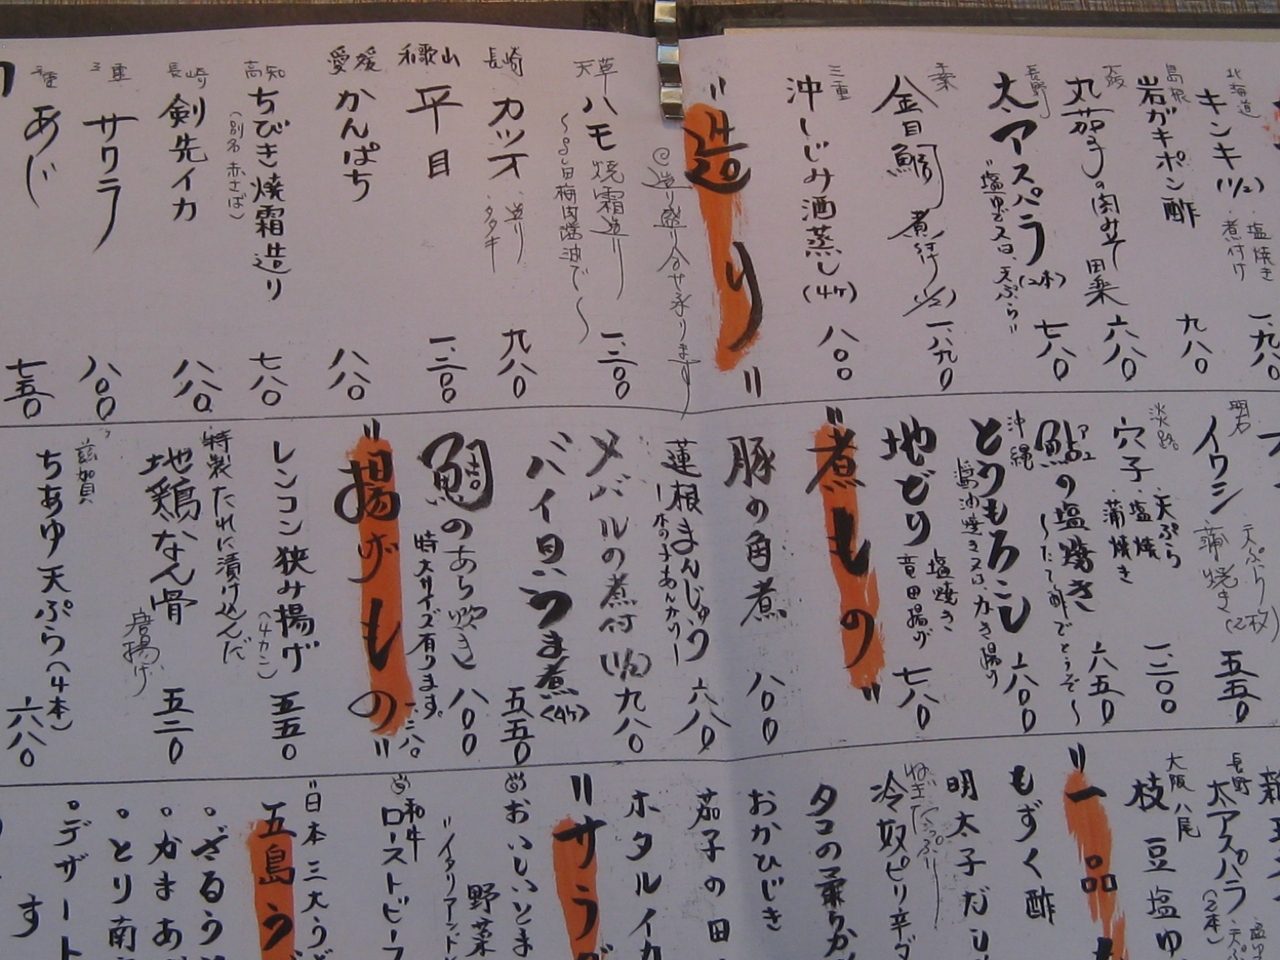 北海道
キンキ(1/2)
塩焼き
煮付け
一、九八〇
島根
岩ガキポン酢
九八〇
大阪
丸茄子の肉みそ田楽
六八〇
長野
太アスパラ(2本)
塩ゆで又は、天ぷら
七八〇
千葉
金目鯛 煮付(1/2)
一、八九〇
三重
沖しじみ酒蒸し(4ケ)
八〇〇
"造り"
◎造り盛り合せ承ります
天草
ハモ焼霜造り
〜自田梅肉醤油で〜
一、二〇〇
長崎
カツオ 造り タタキ
九八〇
和歌山
平目
一、二〇〇
愛媛
かんぱち
八八〇
高知
ちびき焼霜造り
(別名 赤さば)
七八〇
長崎
剣先イカ
八八〇
三重
サワラ
八〇〇
三重
あじ
七五〇
明石
イワシ
天ぷら
蒲焼き
(2枚)
五五〇
淡路
穴子
・天ぷら
・塩焼
・蒲焼き
一、二〇〇
鮎の塩焼き
〜たで酢でどうぞ〜
六五〇
沖縄
とうもろこし
醤油焼き又は、かき揚げ
六〇〇
地どり
塩焼き
竜田揚げ
七八〇
"煮もの"
豚の角煮
八〇〇
蓮根まんじゅう
六八〇
メバルの煮付
九八〇
バイ貝うま煮(4ケ)
五五〇
鯛のあら炊き
八〇〇
特大サイズ有ります。
一、二八〇
"揚げもの"
レンコン狭み揚げ
(4カン)
五五〇
特製たれに漬け込んだ
地鶏なん骨
唐揚げ
五二〇
滋賀
ちあゆ天ぷら(4本)
六八〇
長野
太アスパラ
(2本)
大阪 八尾
枝豆塩ゆ
"一品も
もずく酢
明太子だし
冷奴ピリ辛
ねぎたっぷり
タコの柔らか
おかひじき
茄子の田
ホタルイカ
"サラダ
おいしいとま
野菜
"イタリアンド
和牛
ローストビーフ
"日本三大うど
五島う
・ざるう
・かまあ
・とり南
・デザート
す